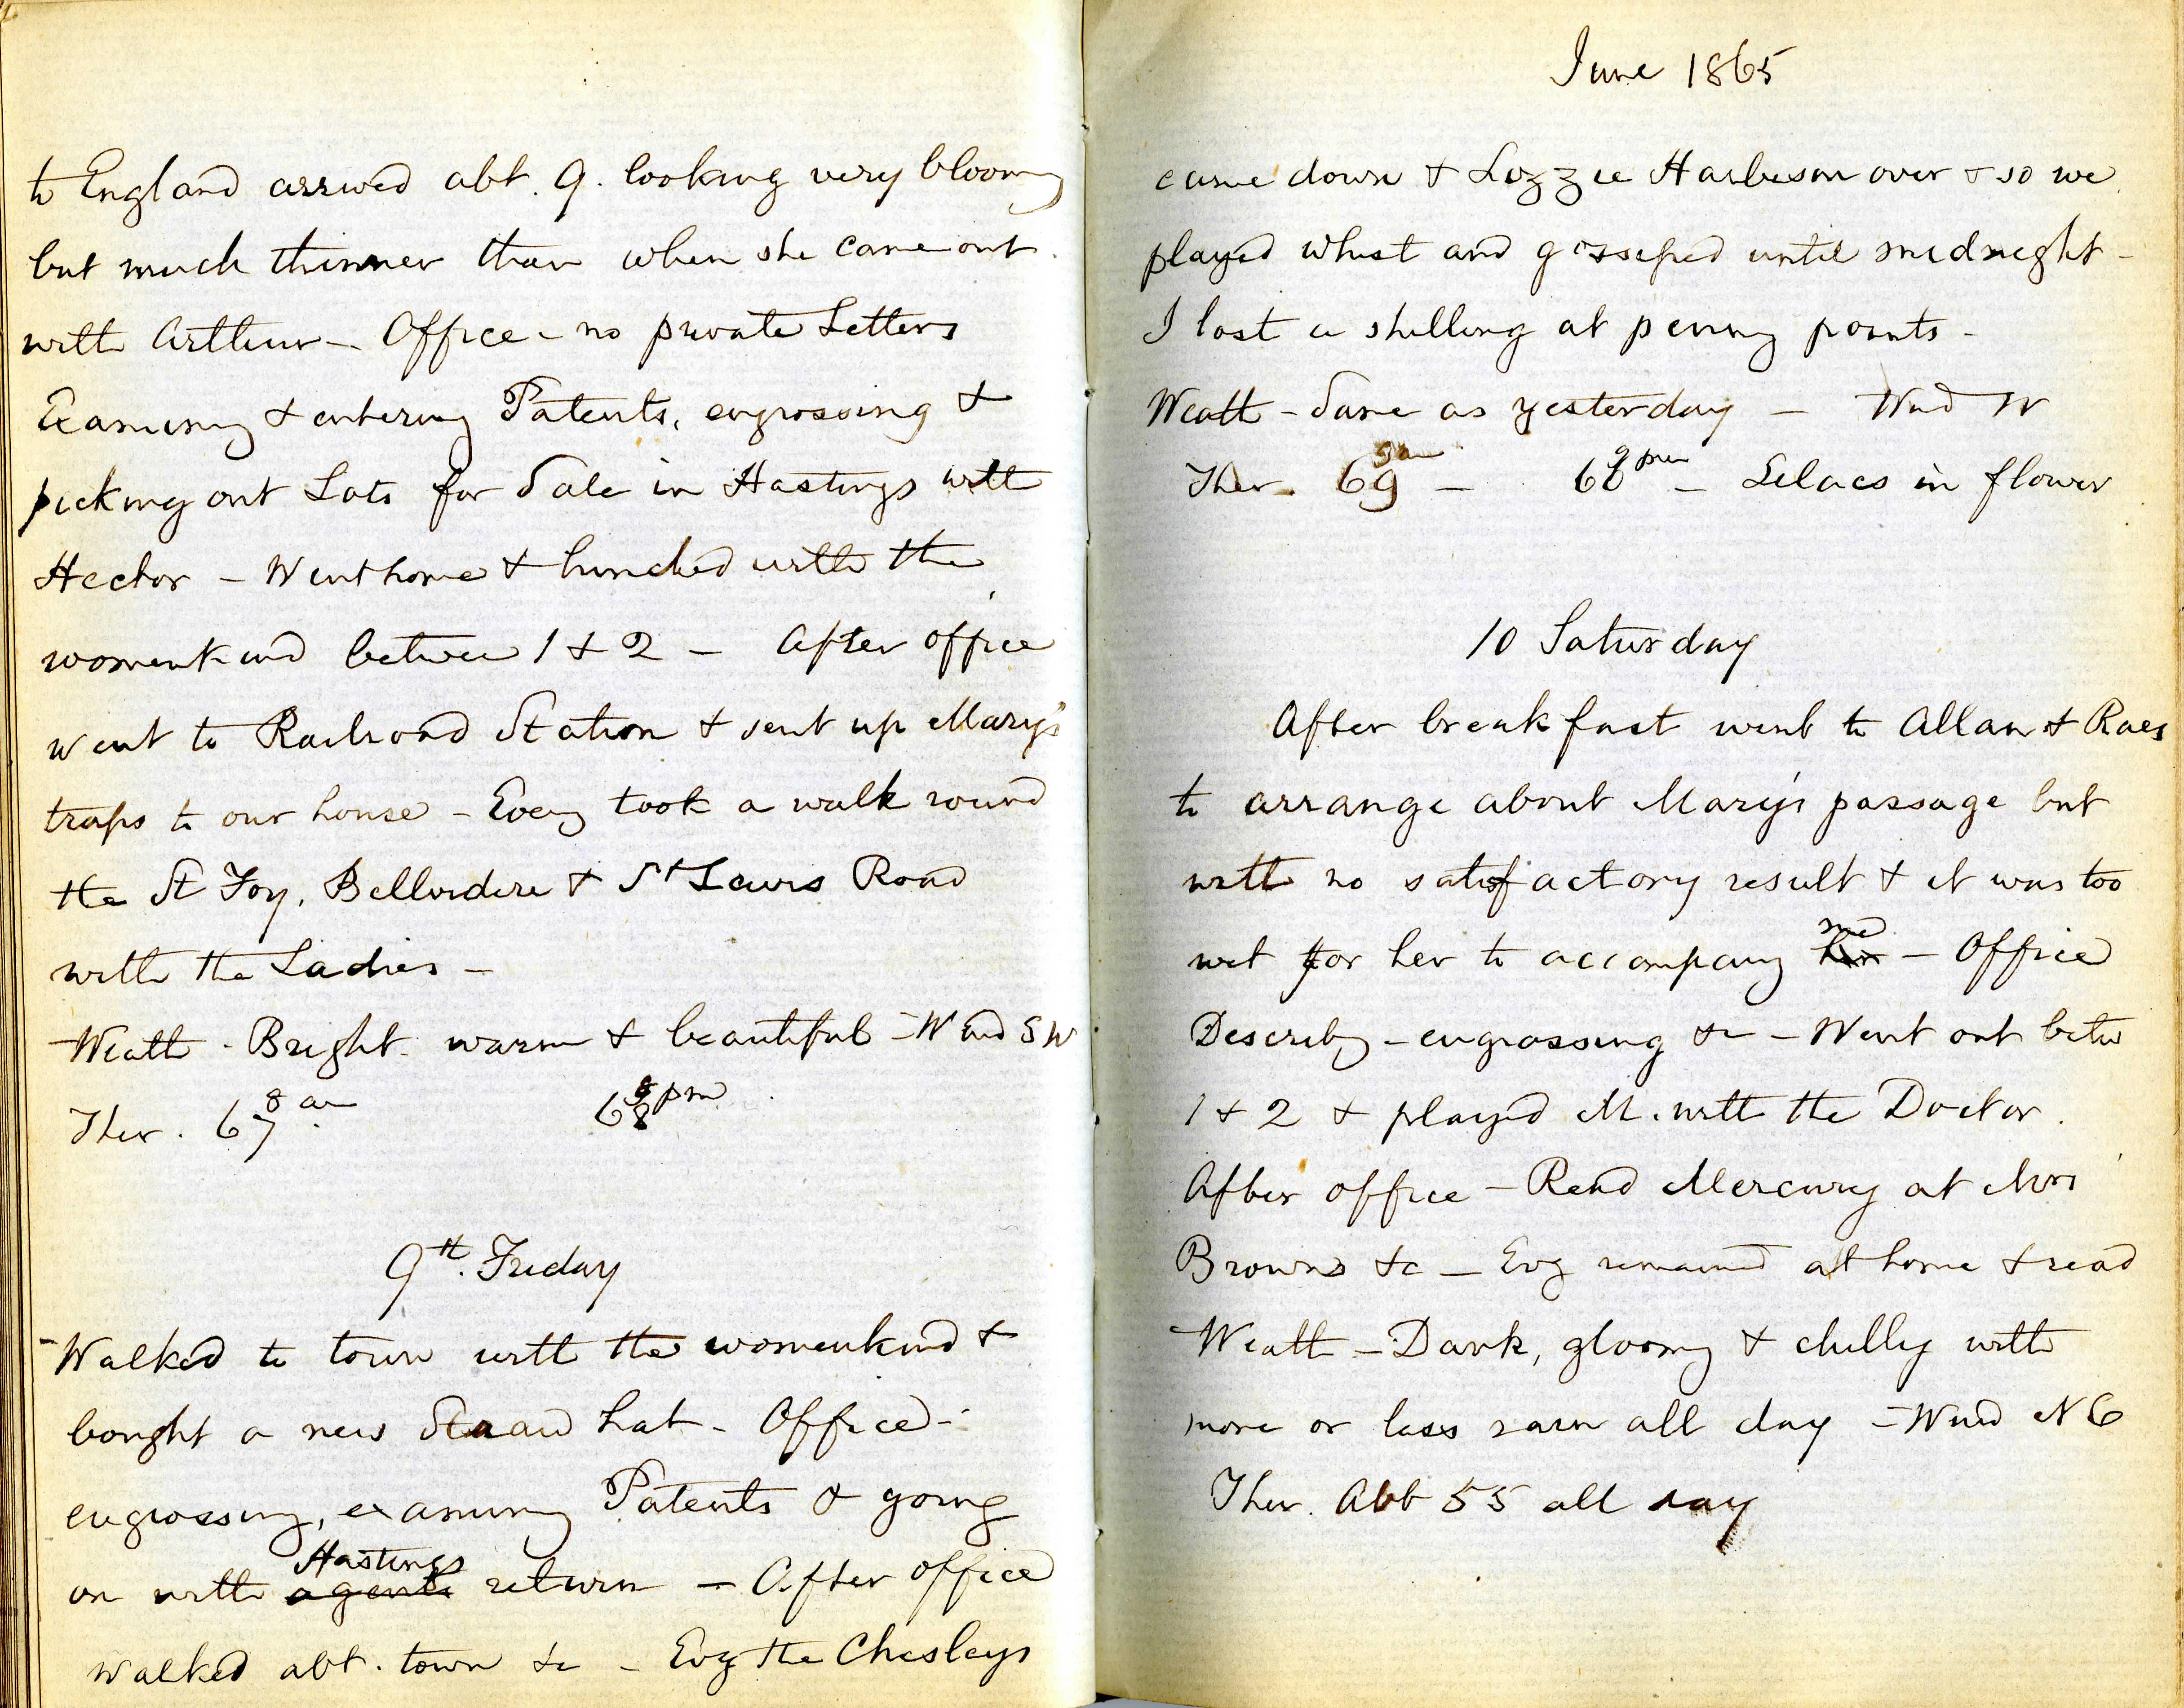 to England arrived abt. 9. looking very bloomg
but much thinner than when she came out
with Arthur – Office – no private Letters
Examing & entering Patents, engrossing &
picking out Lots for Sale in Hastings with
Hector – Went home & lunched with the
womenkind between 1 & 2 – After office
went to Railroad Station & sent up Mary's
traps to our house – Eveg took a walk round
the St Foy, Bellvidere & St Lewis Road
with the Ladies –
Weath – Bright warm & beautiful – Wind SW
Ther. 67 8 am 68 9 pm
9th. Friday
Walked to town with the womenkind &
bought a new Straw hat – Office –
engrossing, examing Patents & going
on with agents Hastings return – After office
walked abt. town &c – Evg the Chesleys
June 1865
came down & Lizzie Harbeson over & so we
played whist and gossiped until midnight –
I lost a shilling at penny points –
Weath – Same as yesterday – Wind W
Ther. 69 9 am – 68 9 pm – Lilacs in flower
10 Saturday
After breakfast went to Allan & Raes
to arrange about Mary's passage but
with no satisfactory result & it was too
wet for her to accompany me – Office
Describg – engrossing &c – Went out betw
1 & 2 & played M. with the Doctor.
After office – Read Mercury at Mrs
Browns &c – Evg remained at home & read
Weath – Dark, gloomy & chilly with
more or less rain all day – Wind NE
Ther. Abt 55 all day